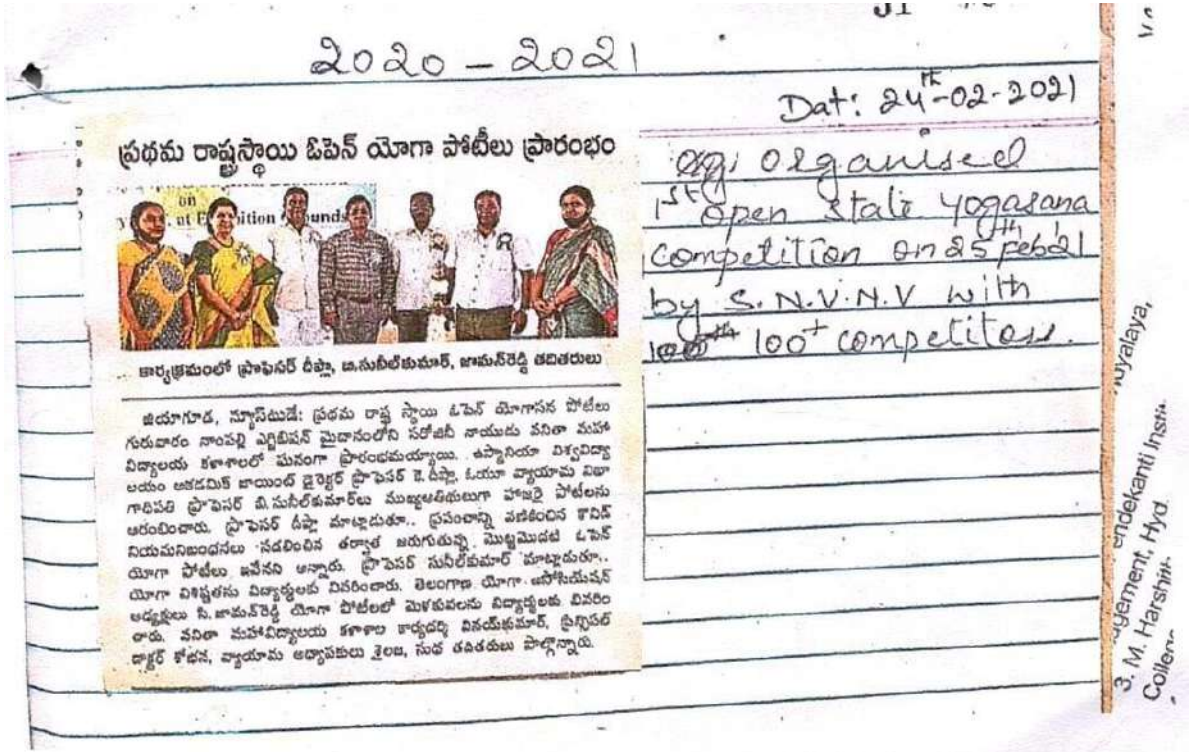 2020 - 2021
Dat: 24th-02-2021
ప్రథమ రాష్ట్రస్థాయి ఓపెన్ యోగా పోటీలు ప్రారంభం
on
at Exhibition Grounds
కార్యక్రమంలో ప్రొఫెసర్ దీప్లా, బి.సునీల్‌కుమార్, జామన్‌రెడ్డి తదితరులు
జియాగూడ, న్యూస్‌టుడే: ప్రథమ రాష్ట్ర స్థాయి ఓపెన్ యోగాసన పోటీలు
గురువారం నాంపల్లి ఎగ్జిబిషన్ మైదానంలోని సరోజినీ నాయుడు వనితా మహా
విద్యాలయ కళాశాలలో ఘనంగా ప్రారంభమయ్యాయి. ఉస్మానియా విశ్వవిద్యా
లయం అకడమిక్ జాయింట్ డైరెక్టర్ ప్రొఫెసర్ కె.దీప్లా, ఓయూ వ్యాయామ విభా
గాధిపతి ప్రొఫెసర్ బి.సునీల్‌కుమార్‌లు ముఖ్యఅతిథులుగా హాజరై పోటీలను
ఆరంభించారు. ప్రొఫెసర్ దీప్లా మాట్లాడుతూ.. ప్రపంచాన్ని వణికించిన కొవిడ్
నియమనిబంధనలు సడలించిన తర్వాత జరుగుతున్న మొట్టమొదటి ఓపెన్
యోగా పోటీలు ఇవేనని అన్నారు. ప్రొఫెసర్ సునీల్‌కుమార్ మాట్లాడుతూ..
యోగా విశిష్టతను విద్యార్థులకు వివరించారు. తెలంగాణ యోగా అసోసియేషన్
అధ్యక్షులు సి.జామన్‌రెడ్డి యోగా పోటీలలో మెళకువలను విద్యార్థులకు వివరిం
చారు. వనితా మహావిద్యాలయ కళాశాల కార్యదర్శి వినయ్‌కుమార్, ప్రిన్సిపల్
డాక్టర్ శోభన, వ్యాయామ అధ్యాపకులు శైలజ, సుధ తదితరులు పాల్గొన్నారు.
organised
1st open state yogasana
competition on 25th feb 21
by S.N.V.N.V with
100+ competitors.
3. M. Harshini
College